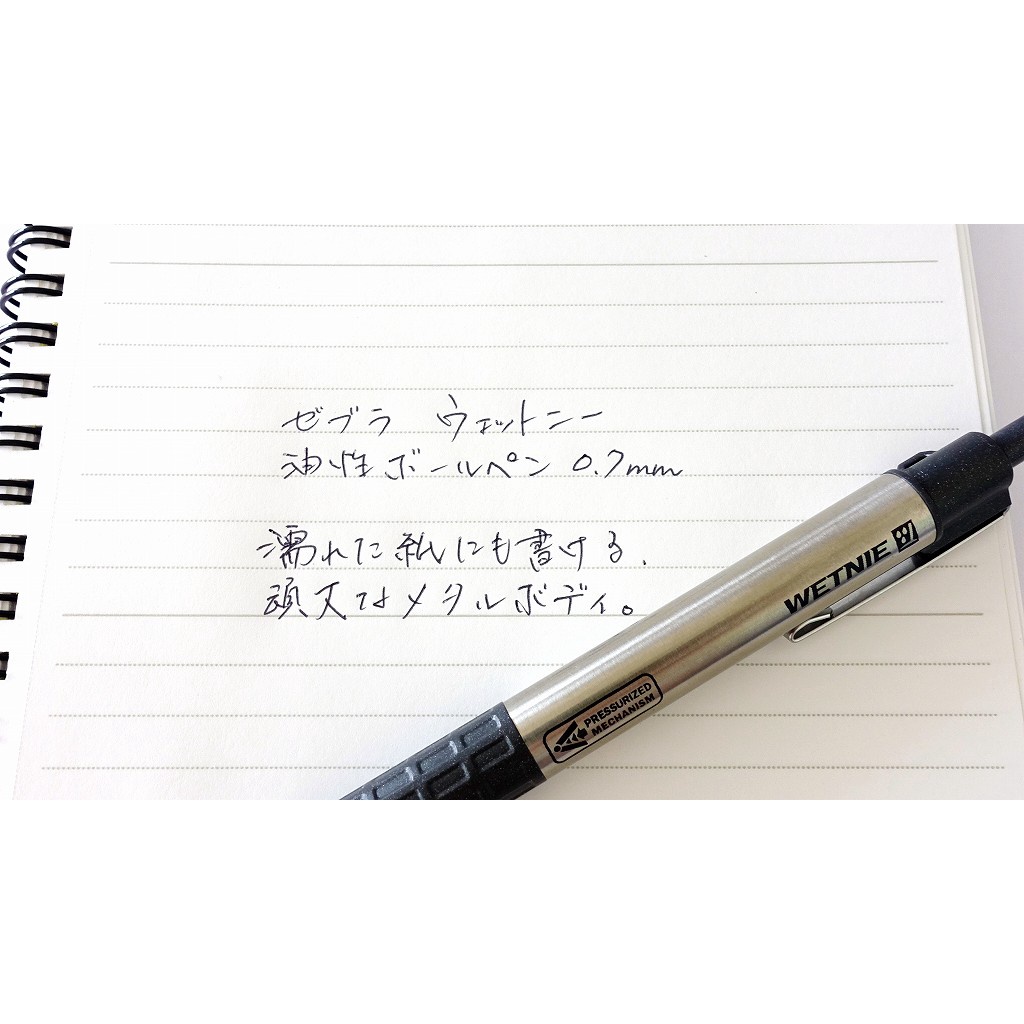 ゼブラ ウェットニー
油性ボールペン 0.7mm
濡れた紙にも書ける.
頑丈なメタルボディ。
WETNIE
PRESSURIZED
MECHANISM